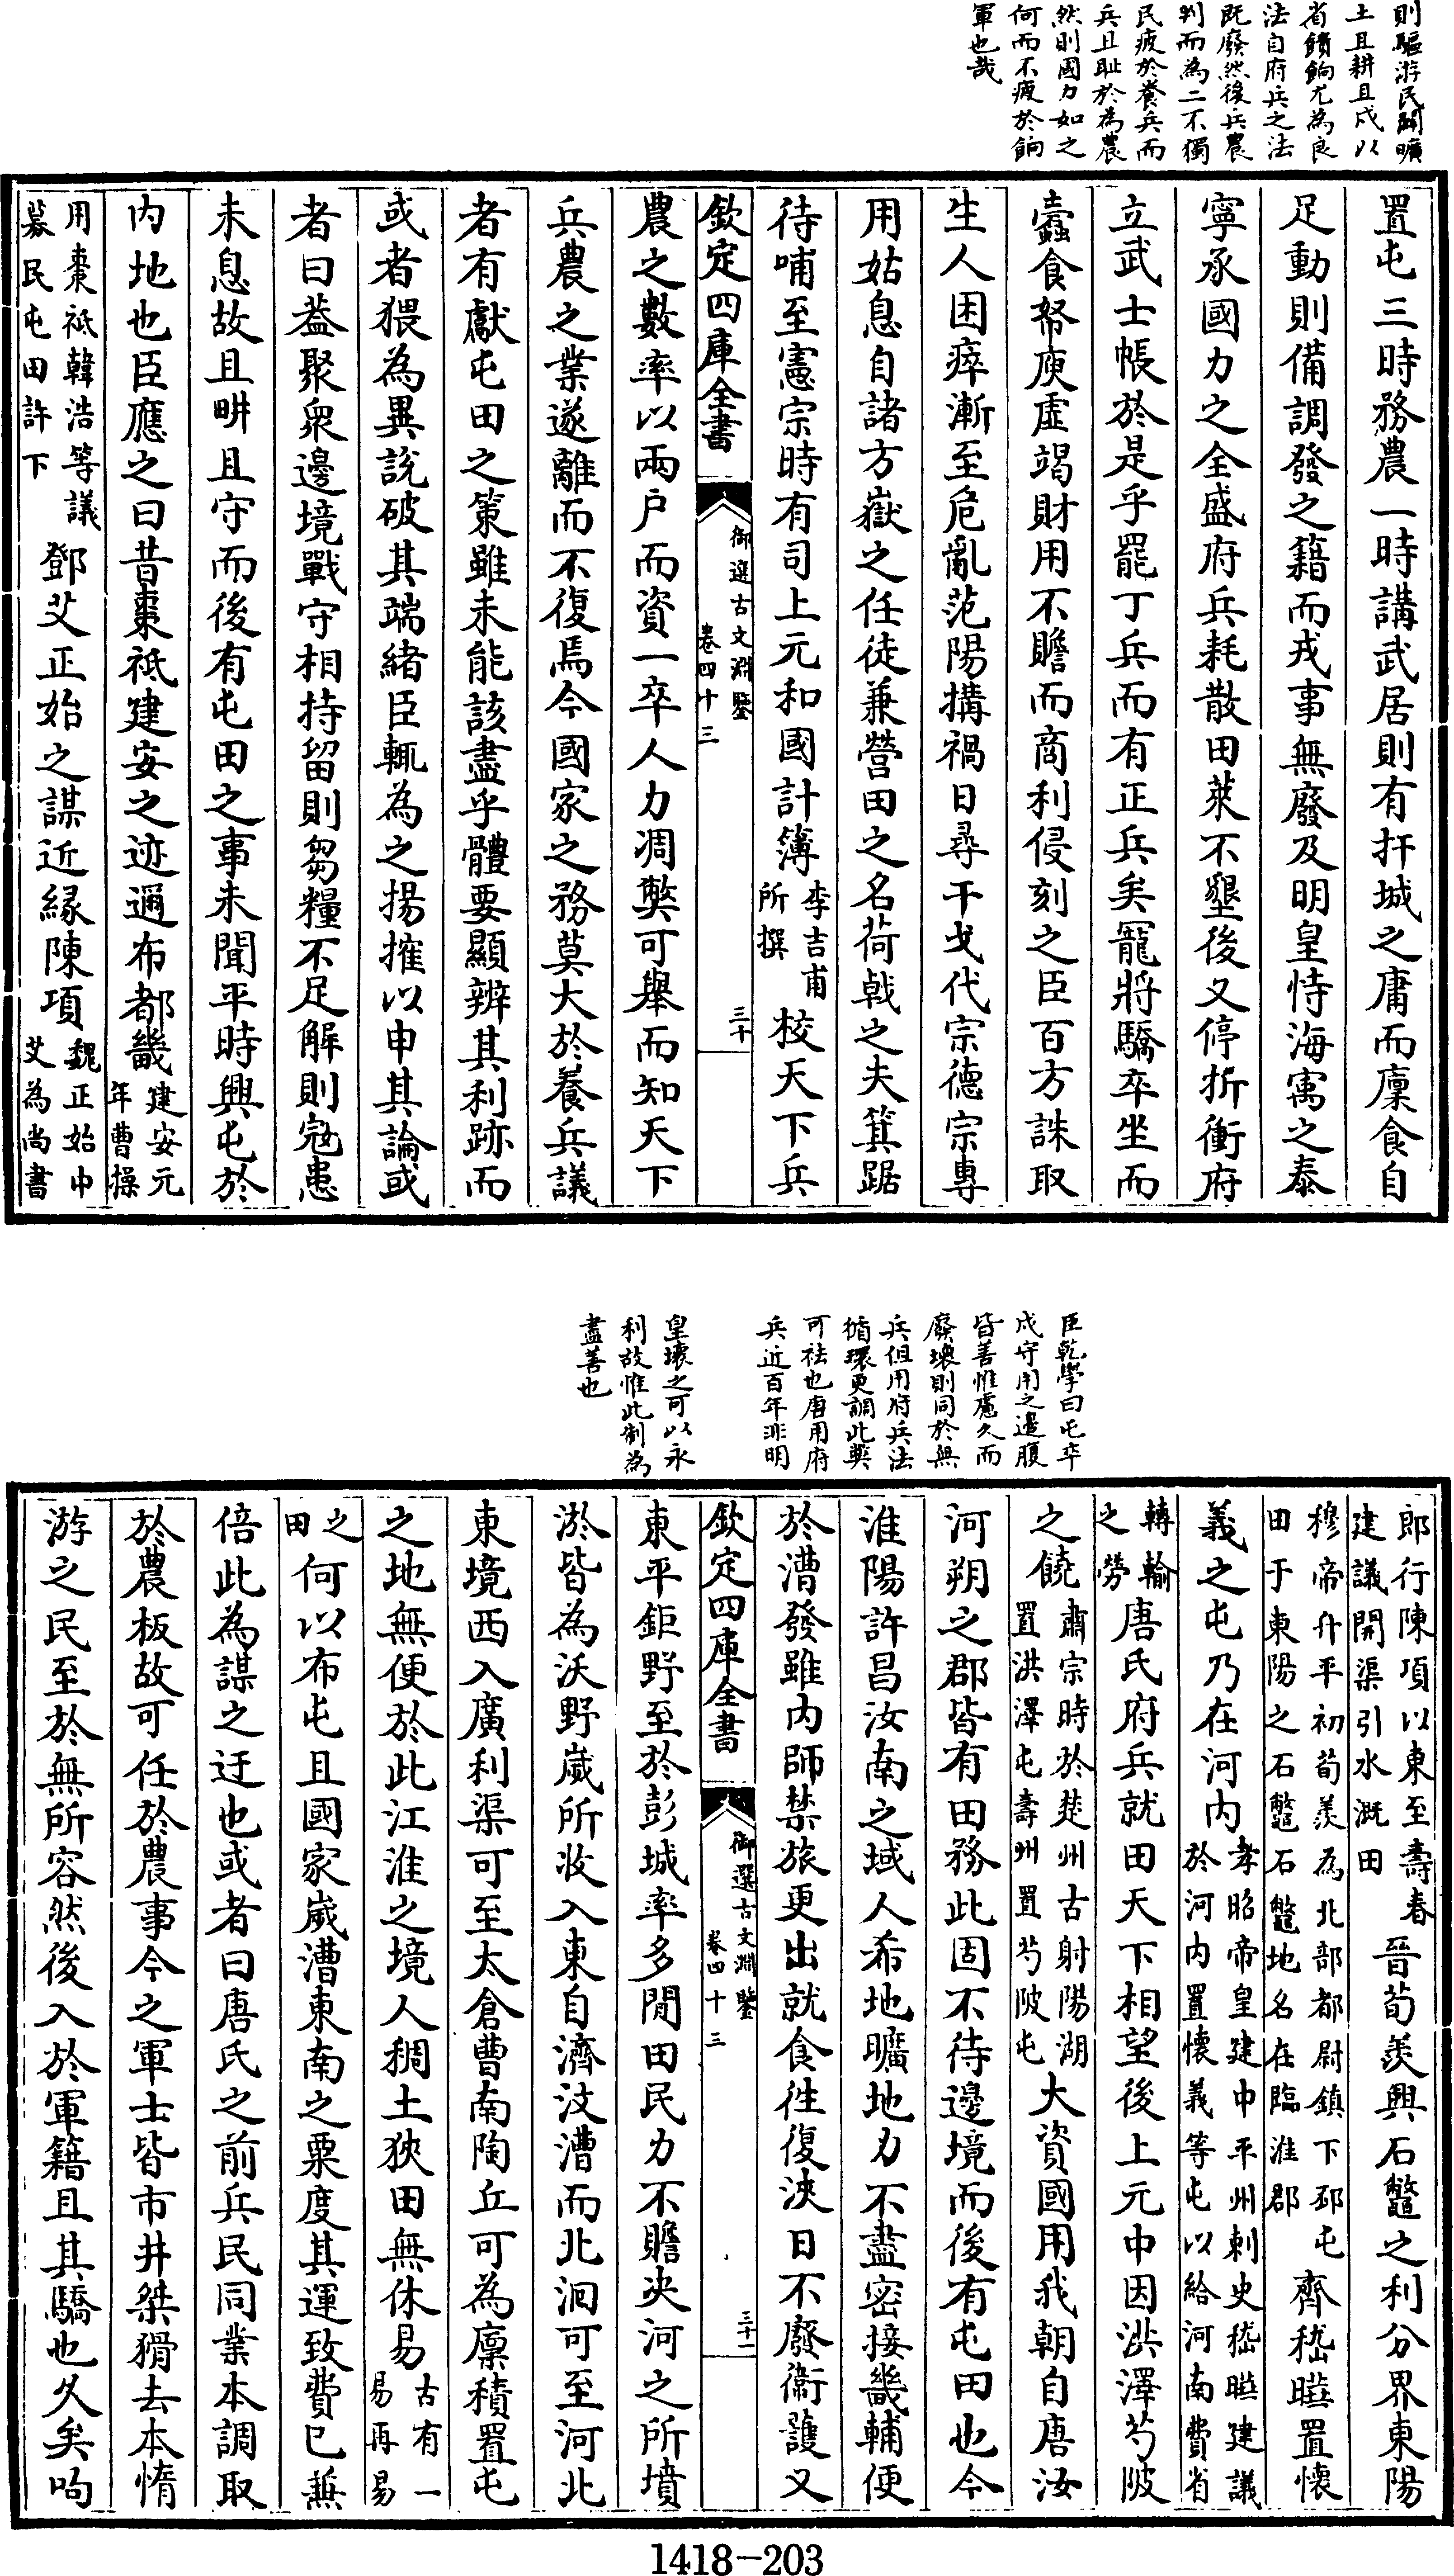 則驅游民開曠
土且耕且戍以
省饋餉尤為良
法自府兵之法
既廢然後兵農
判而為二不獨
民疲於養兵而
兵且耻於為農
然則國力如之
何而不疲於餉
軍也哉
置屯三時務農一時講武居則有扞城之庸而廩食自
足動則備調發之籍而戎事無廢及明皇恃海㝢之泰
寧承國力之全盛府兵耗散田萊不墾後又停折衝府
立武士帳於是乎罷丁兵而有正兵矣寵將驕卒坐而
蠧食帑庾虛竭財用不贍而商利侵刻之臣百方誅取
生人困瘁漸至危亂范陽搆禍日尋干戈代宗德宗專
用姑息自諸方嶽之任徒兼營田之名荷戟之夫箕踞
待哺至憲宗時有司上元和國計簿李吉甫所撰校天下兵
欽定四庫全書 御選古文淵鑒 卷四十三 三十
農之數率以兩户而資一卒人力凋弊可舉而知天下
兵農之業遂離而不復焉今國家之務莫大於養兵議
者有獻屯田之策雖未能該盡乎體要顯辨其利跡而
或者猥為異說破其端緒臣輒為之揚搉以申其論或
者曰葢聚衆邊境戰守相持留則芻糧不足解則宼患
未息故且畊且守而後有屯田之事未聞平時興屯於
内地也臣應之曰昔棗祗建安之迹邇布都畿建安元年曹操
用棗祗韓浩等議募民屯田許下鄧艾正始之謀近縁陳項魏正始中艾為尚書
臣乾學曰屯卒
戍守用之邊腹
皆善惟慮久而
廢壊則同於無
兵但用府兵法
循環更調此弊
可袪也唐用府
兵近百年非明
皇壊之可以永
利故惟此制為
盡善也
郎行陳項以東至壽春建議開渠引水溉田晉荀羨興石鼈之利分界東陽
穆帝升平初荀羨為北部都尉鎮下邳屯田于東陽之石鼈石鼈地名在臨淮郡齊嵇曄置懷
義之屯乃在河内孝昭帝皇建中平州刺史嵇曄建議於河内置懷義等屯以給河南費省
轉輸之勞唐氏府兵就田天下相望後上元中因洪澤芍陂
之饒肅宗時於楚州古射陽湖置洪澤屯壽州置芍陂屯大資國用我朝自唐汝
河朔之郡皆有田務此固不待邊境而後有屯田也今
淮陽許昌汝南之域人希地曠地力不盡密接畿輔便
於漕發雖内師禁旅更出就食徃復浹日不廢衞護又
欽定四庫全書 御選古文淵鑒 卷四十三 三十一
東平鉅野至於彭城率多閒田民力不贍决河之所墳
淤皆為沃野嵗所收入東自濟汶漕而北洄可至河北
東境西入廣利渠可至太倉曹南陶丘可為廩積置屯
之地無便於此江淮之境人稠土狹田無休易古有一易再易
之田何以布屯且國家嵗漕東南之粟度其運致費已兼
倍此為謀之迂也或者曰唐氏之前兵民同業本調取
於農板故可任於農事今之軍士皆市井桀猾去本惰
游之民至於無所容然後入於軍籍且其驕也久矣呴
1418-203